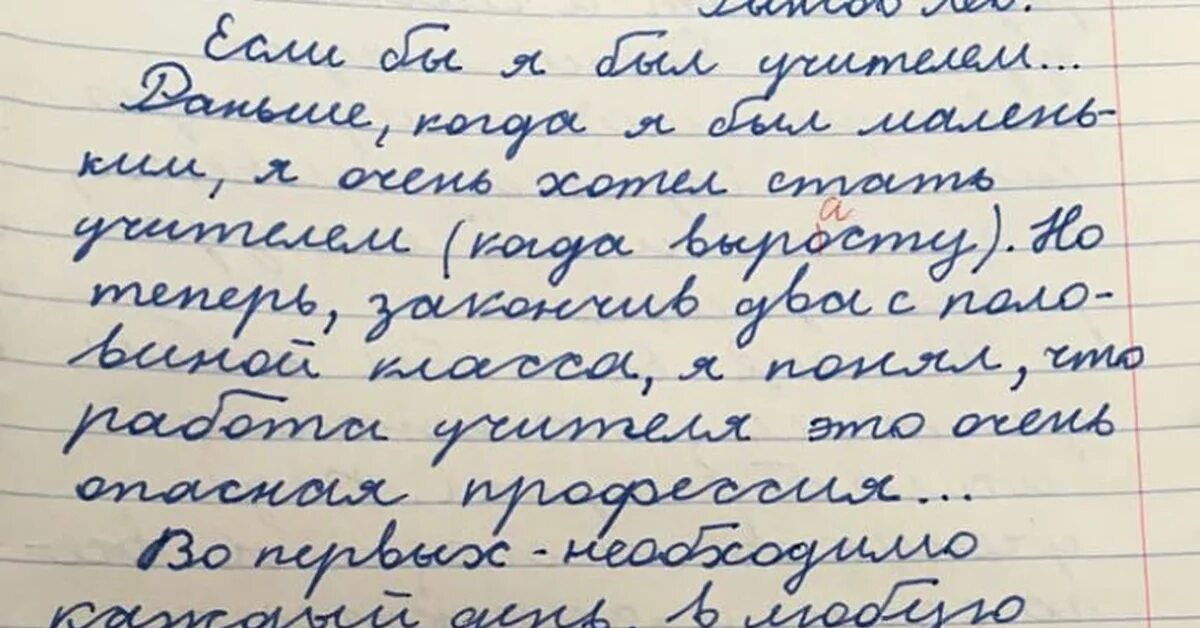 Если бы я был учителем...
Раньше, когда я был малень-
ким, я очень хотел стать
а
учителем (когда выросту). Но
теперь, закончив два с поло-
виной класса, я понял, что
работа учителя это очень
опасная профессия...
Во первых - необходимо
каждый день, в любую